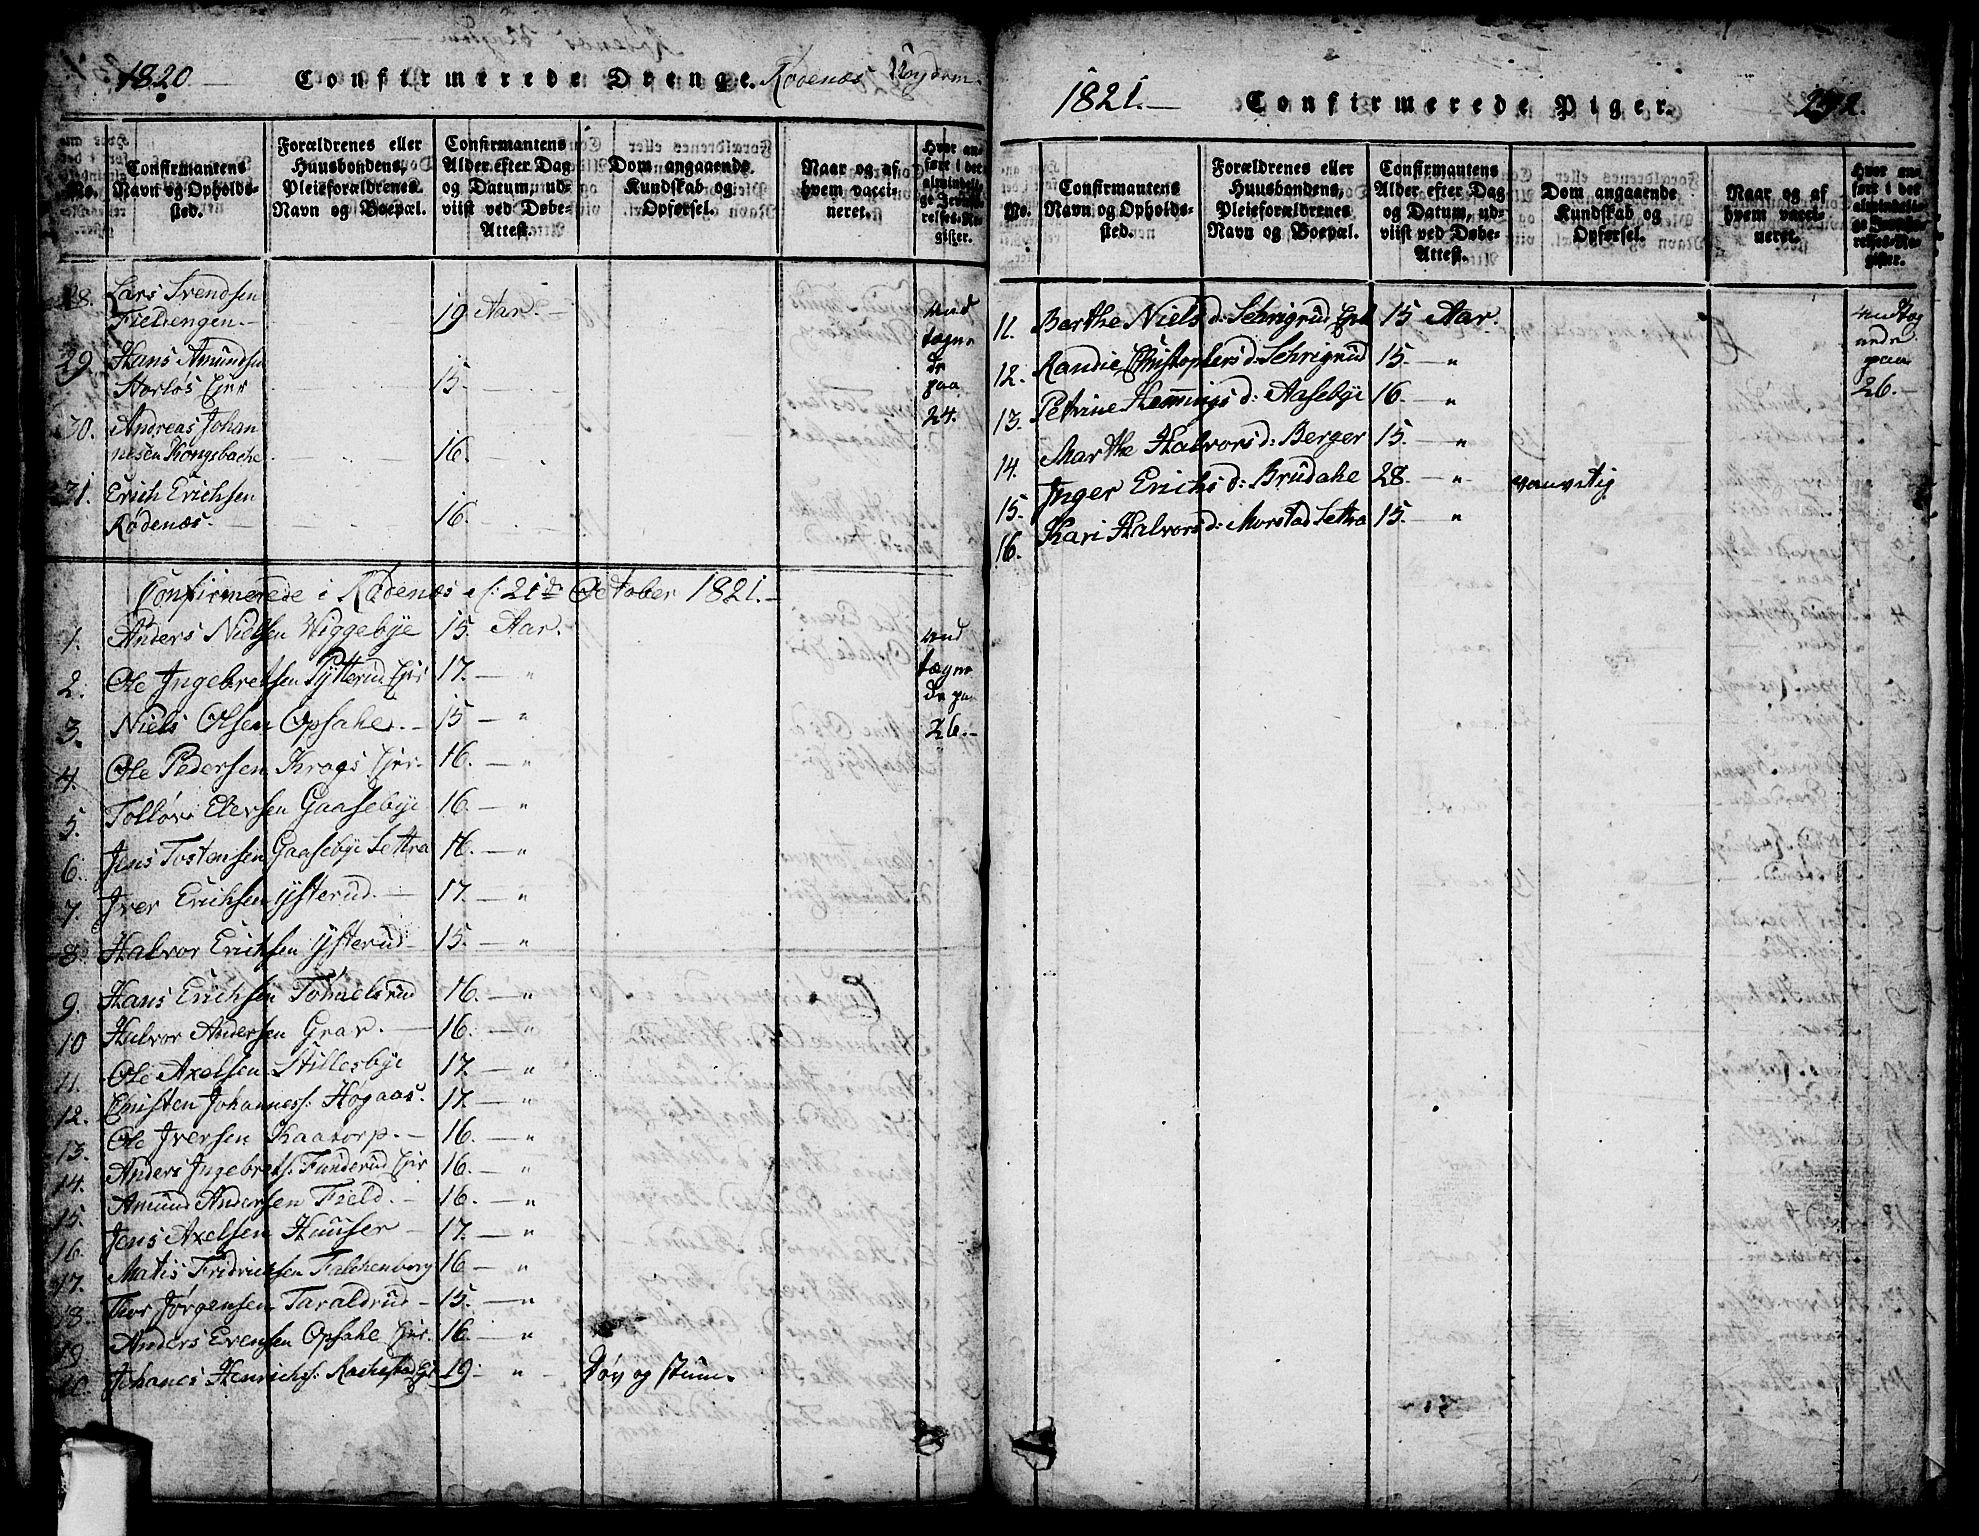 1820. Confirmerede Drenge. Rødenæs
No.
Confirmantens Navn og Opholdssted.
Forældrenes eller Huusbondens, Pleieforældrenes Navn og Boepæl.
Confirmantens Alder efter Dag og Datum, udviist ved Døbe-Attest.
Dom angaaende Kundskab og Opførsel.
Naar og af hvem vaccineret.
Hvor anført i det almindelige Jevnførelses-Register.
28. Lars Svendsen
Fieldengen. 19 Aar.
29. Hans Amundsen
15.
30. Andreas Johan
nesen Kongsbache 16.
31. Erich Erichsen
Rødenæs. 16.
und
tagne
de
paa
24.
Confirmerede i Rødenæs 21de October 1821.
1. Anders Nielsen Wiggebye 15. Aar.
2. Ole Ingebretsen Ejer 17. — "
3. Niels Olsen Opsahe. 15 — "
4. Ole Pedersen Krogs Ejer. 16. — "
5. Gaasebye 16. — "
6. Jens Tostensen Gaasebye Settra 16. — "
7. Iver Erichsen Ysterud. 17. — "
8. Halvor Erichsen Ysterud 15. — "
9. Hans Erichsen 16. — "
10 Halvor Andersen Grav. 16. "
11. Ole Axelsen Stillesbye 17. — "
12. Christen Johanness: Hogaas. 17. — "
13. Ole Iversen Kaatorp. 16. — "
14. Anders Ingebrets: Funderud Ejer 16. — "
15. Amund Andersen Field. 16. — "
16. Jens Axelsen 17. — "
17. Matis Fridrichsen Falchenborg 16 — "
18. Thor Jørgensen Taraldrud 15. — "
19 Anders Evensen Opsahe Ejer. 16. — "
20. Johanes Henrichs: 19. " Døv og stum.
und
tagne
de paa
26.
1821. Confirmerede Piger. 292.
No.
Confirmantens Navn og Opholdssted.
Forældrenes eller Huusbondens, Pleieforældrenes Navn og Boepæl.
Confirmantens Alder efter Dag og Datum, udviist ved Døbe-Attest.
Dom angaaende Kundskab og Opførsel.
Naar og af hvem vaccineret.
Hvor anført i det almindelige Jevnførelses-Register.
11. Barthe Niels d: 15 Aar.
12. Randie Christophers d: 15. — "
13. Petrine Hemmings d: Aasebye 16. "
14. Marthe Halvors d: Berger 15. "
15. Inger Erichs d: Brudahe 28. — " vanvitig
16. Kari Halvors d: Morstad Settra 15. — "
undtag
nede
paa
26.